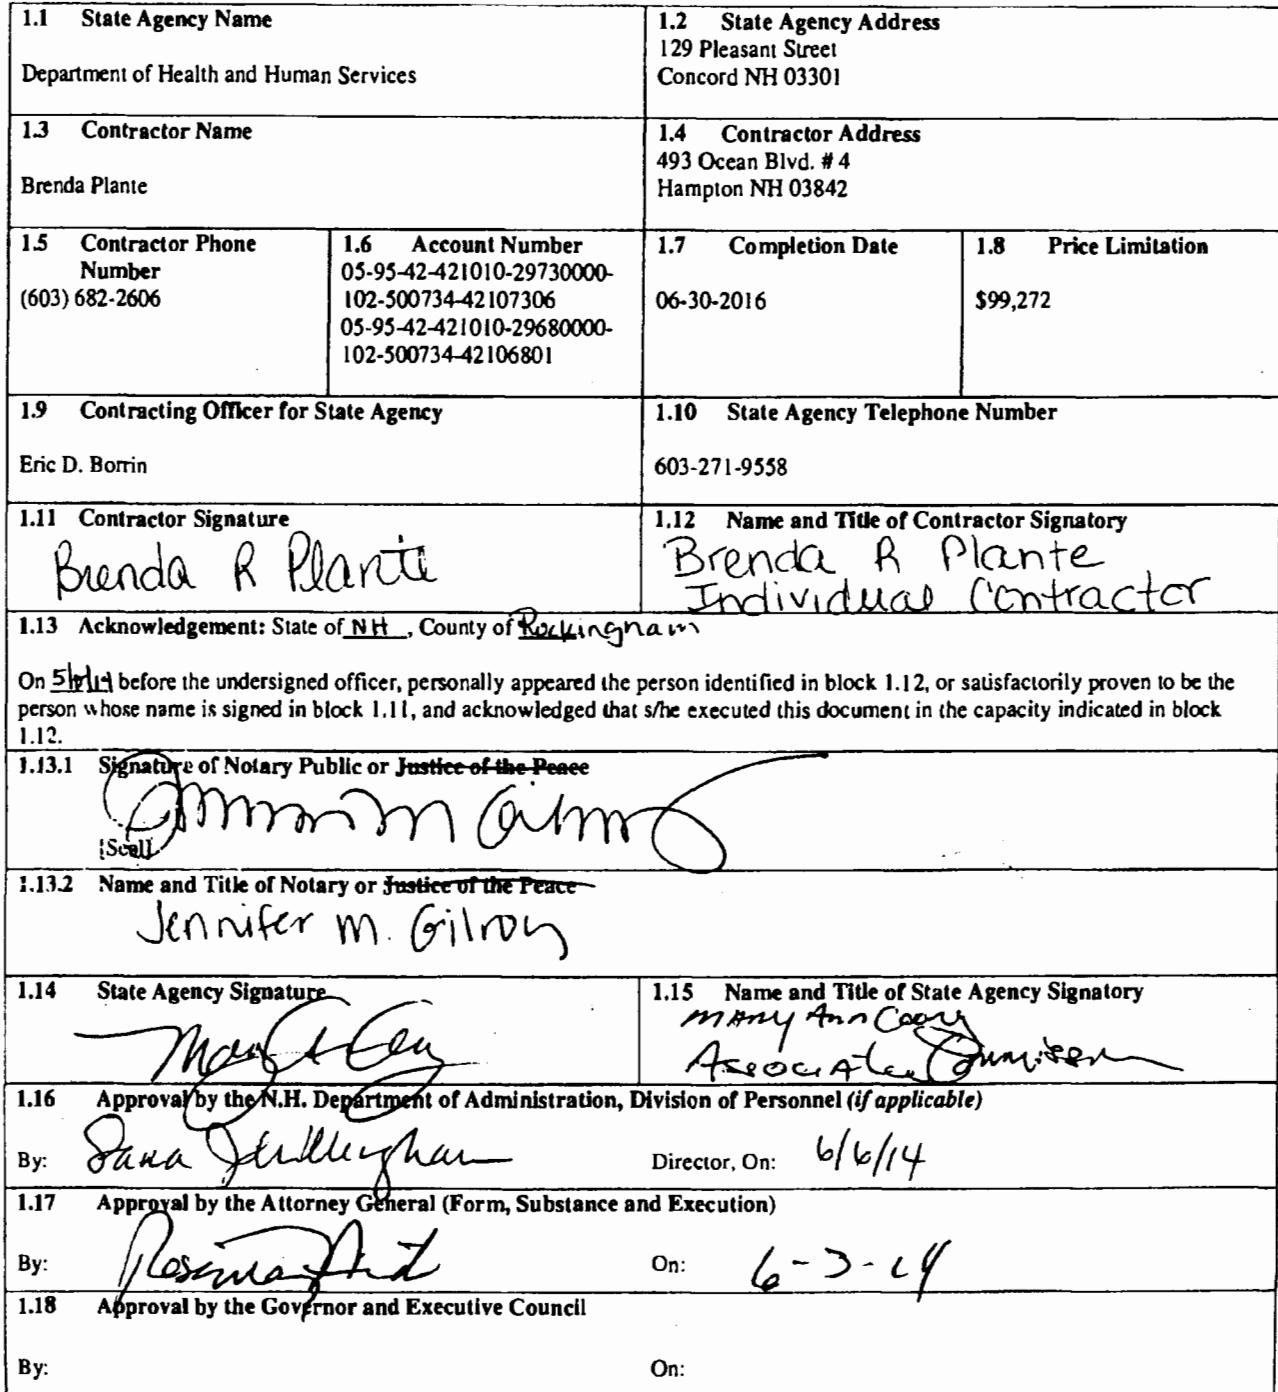 1.1 State Agency Name
Department of Health and Human Services
1.2 State Agency Address
129 Pleasant Street
Concord NH 03301
1.3 Contractor Name
Brenda Plante
1.4 Contractor Address
493 Ocean Blvd. # 4
Hampton NH 03842
1.5 Contractor Phone
Number
(603) 682-2606
1.6 Account Number
05-95-42-421010-29730000-
102-500734-42107306
05-95-42-421010-29680000-
102-500734-42106801
1.7 Completion Date
06-30-2016
1.8 Price Limitation
$99,272
1.9 Contracting Officer for State Agency
Eric D. Borrin
1.10 State Agency Telephone Number
603-271-9558
1.11 Contractor Signature
Brenda R Plante
1.12 Name and Title of Contractor Signatory
Brenda R Plante
Individual Contractor
1.13 Acknowledgement: State of NH, County of Rockingham
On before the undersigned officer, personally appeared the person identified in block 1.12, or satisfactorily proven to be the
person whose name is signed in block 1.11, and acknowledged that s/he executed this document in the capacity indicated in block
1.12.
1.13.1 Signature of Notary Public or Justice of the Peace
[Seal]
1.13.2 Name and Title of Notary or Justice of the Peace
Jennifer M. Gilroy
1.14 State Agency Signature
1.15 Name and Title of State Agency Signatory
Mary Ann Cooney
Associate Commissioner
1.16 Approval by the N.H. Department of Administration, Division of Personnel (if applicable)
By:
Director, On: 6/6/14
1.17 Approval by the Attorney General (Form, Substance and Execution)
By:
On: 6-3-14
1.18 Approval by the Governor and Executive Council
By:
On: